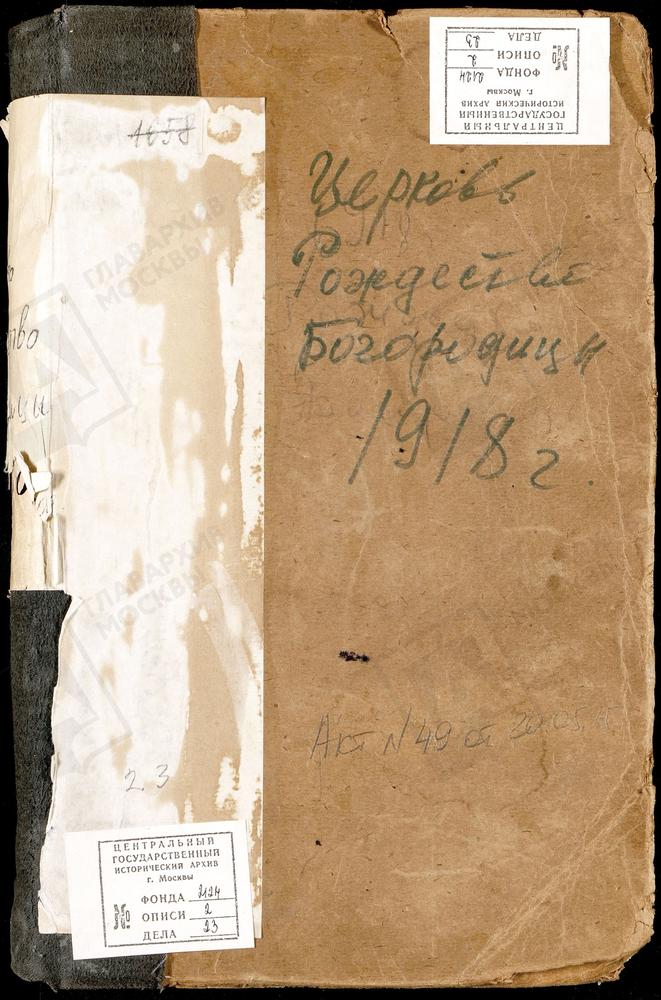 ДЕЛА 23
ОПИСИ 2
ФОНДА 2124
№
г. Москвы
ИСТОРИЧЕСКИЙ АРХИВ
ГОСУДАРСТВЕННЫЙ
ЦЕНТРАЛЬНЫЙ
1658
Церковь
Рождества
Богородицы
1918 г.
ГЛАВАРХИВ
МОСКВЫ
тво
ицы
ГЛАВАРХИВ
МОСКВЫ
Акт N 49 от 20.05.
2.3
ЦЕНТРАЛЬНЫЙ
ГОСУДАРСТВЕННЫЙ
ИСТОРИЧЕСКИЙ АРХИВ
г. Москвы
№
ФОНДА 2124
ОПИСИ 2
ДЕЛА 23